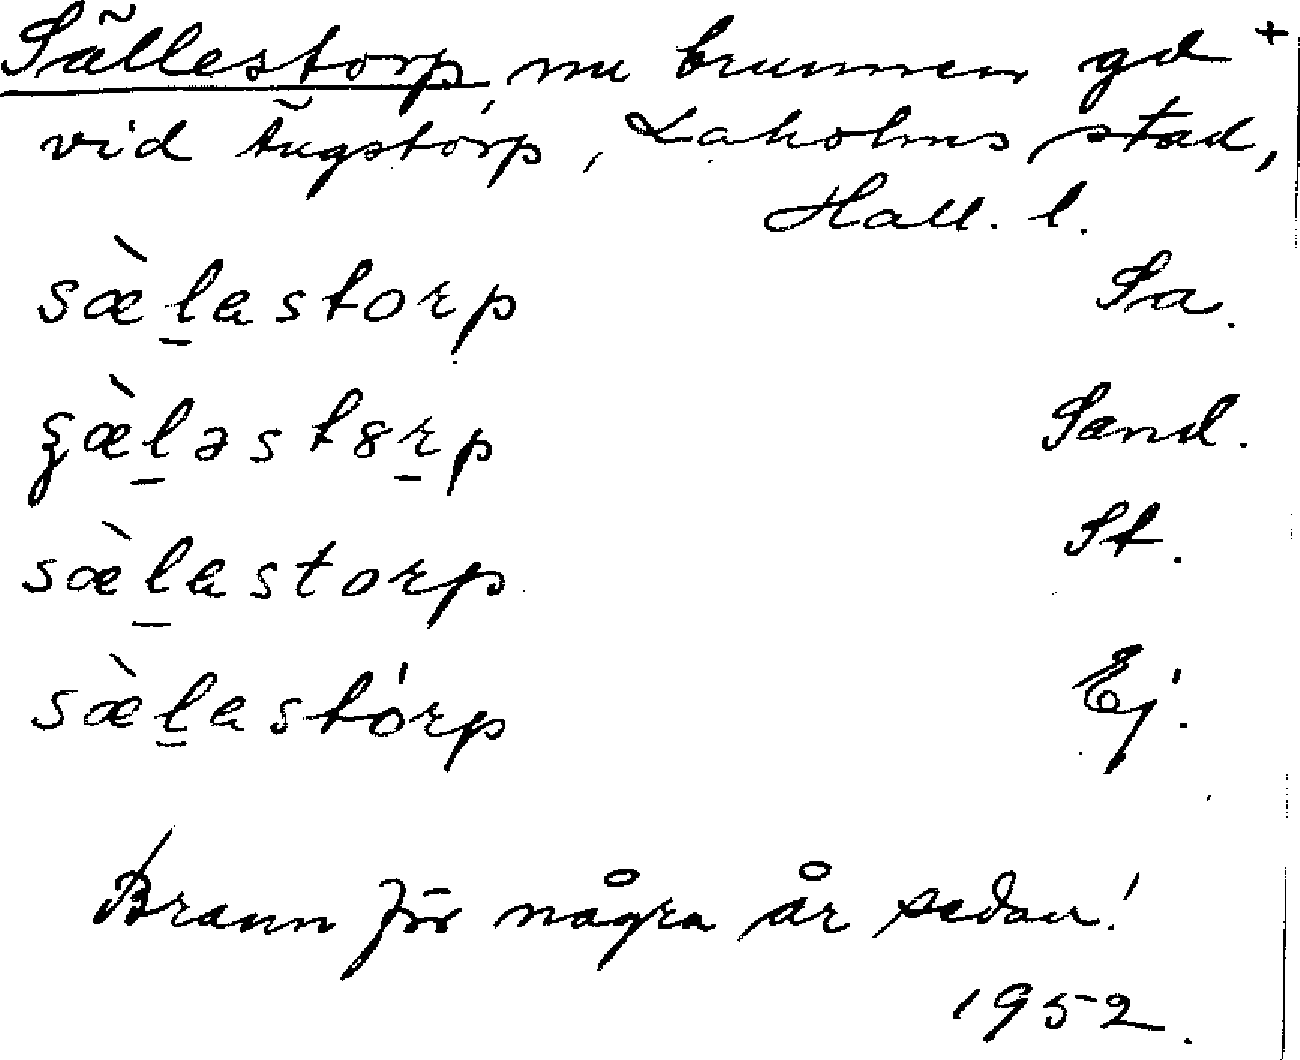 Sällestorp, nu brunnen gd +
vid Ängstorp, Laholms stad,
Hall. l.
sæ̀l̠astorp Sa.
sæ̀l̠əst8r̠p Sand.
sæ̀l̠astorp St.
sæ̀l̠astórp Ej.
Brann för några år sedan!
1952.